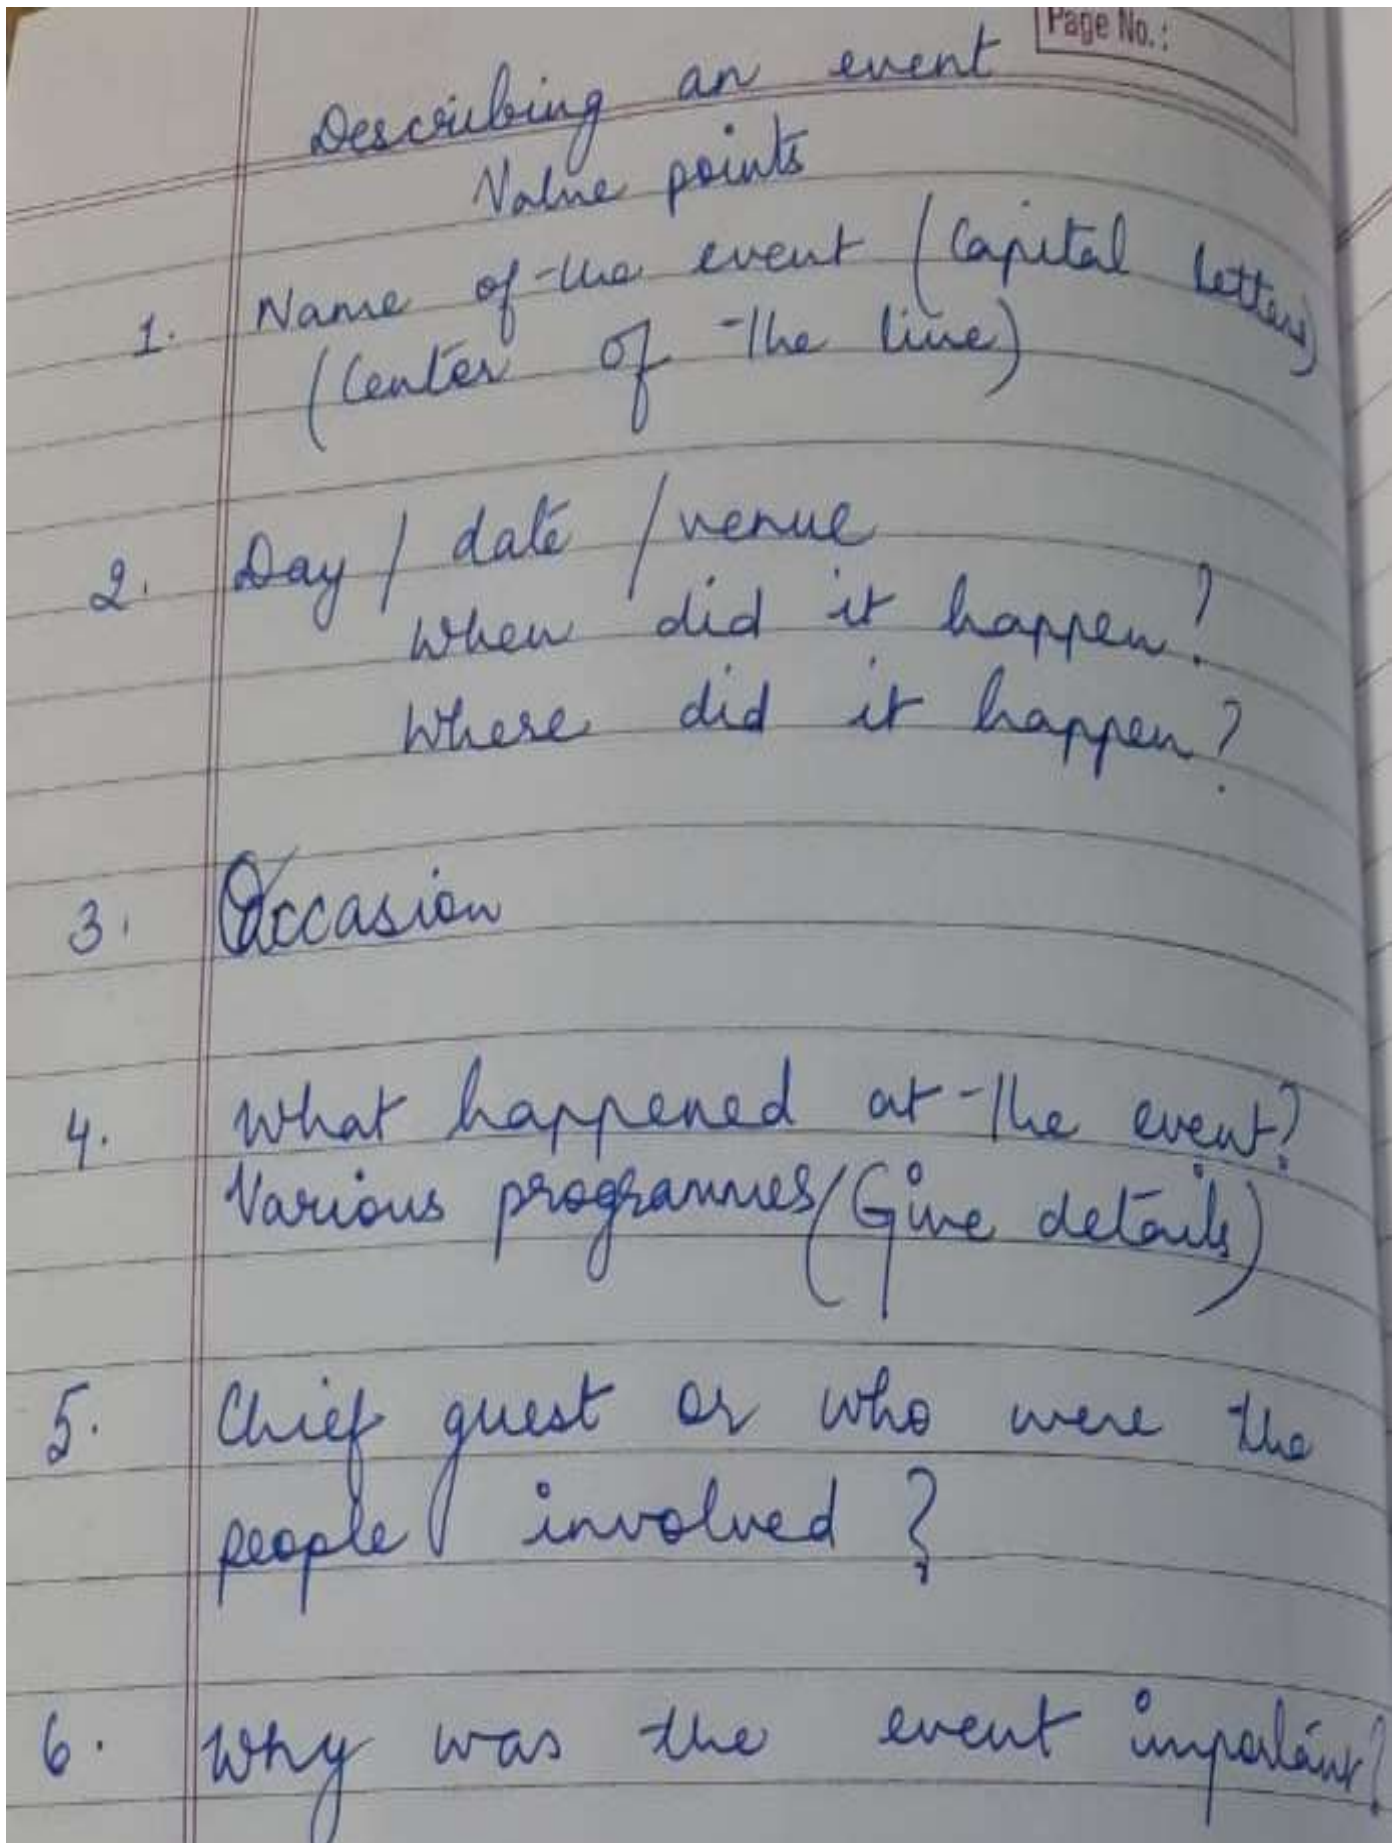 Page No.:
Describing an event
Value points
1. Name of the event (Capital letters)
(Center of the line)
2. Day / date / venue
When did it happen?
Where did it happen?
3. Occasion
4. What happened at the event?
Various programmes (Give details)
5. Chief guest or who were the
people involved ?
6. Why was the event important?